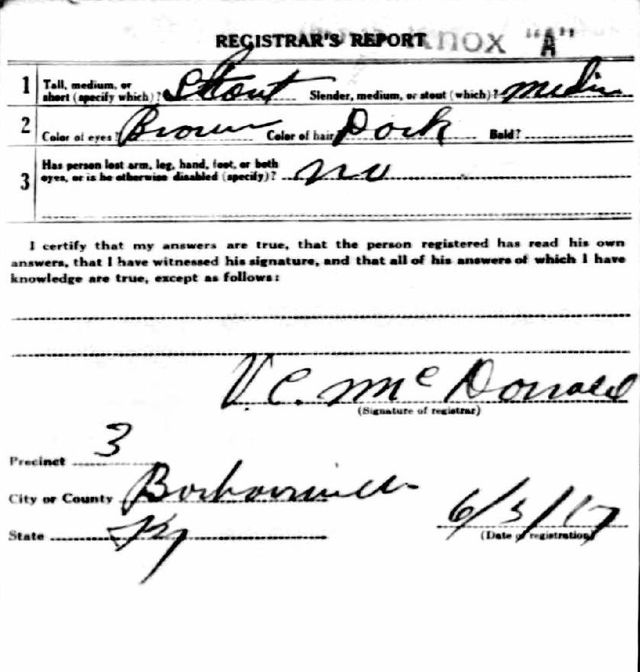 REGISTRAR'S REPORT Knox "A"
1 Tall, medium, or short (specify which)? Stout Slender, medium, or stout (which)? Medium
2 Color of eyes? Brown Color of hair Dark Bald?
3 Has person lost arm, leg, hand, foot, or both eyes, or is he otherwise disabled (specify)? no
I certify that my answers are true, that the person registered has read his own
answers, that I have witnessed his signature, and that all of his answers of which I have
knowledge are true, except as follows:
V. C. McDonald
(Signature of registrar)
Precinct 3
City or County Barbourville
State Ky
6/5/17
(Date of registration)